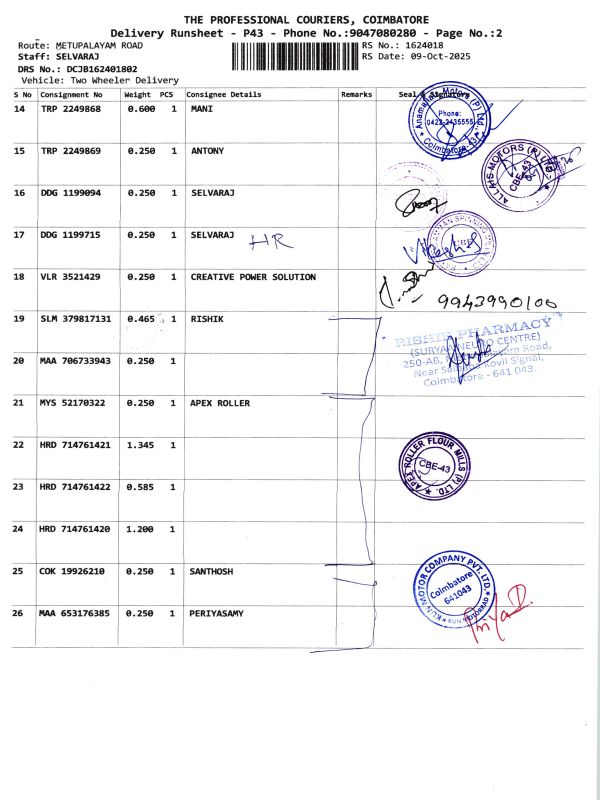 THE PROFESSIONAL COURIERS, COIMBATORE
Delivery Runsheet - P43 - Phone No.:9047080280 - Page No.:2
Route: METUPALAYAM ROAD RS No.: 1624018
Staff: SELVARAJ RS Date: 09-Oct-2025
DRS No.: DCJB162401802
Vehicle: Two Wheeler Delivery
S No Consignment No Weight PCS Consignee Details Remarks Seal & Signature
14 TRP 2249868 0.600 1 MANI
Anamallais Motors (P) Ltd.
Phone:
0422-2435555
Coimbatore-43
15 TRP 2249869 0.250 1 ANTONY
ALLAIS MOTORS (P) LTD
CBE-43
16 DDG 1199094 0.250 1 SELVARAJ
17 DDG 1199715 0.250 1 SELVARAJ
HR
SPINNING
CBE
18 VLR 3521429 0.250 1 CREATIVE POWER SOLUTION
9943990100
19 SLM 379817131 0.465 1 RISHIK
RISHIK PHARMACY
(SURYAA NEURO CENTRE)
250-AB, Road,
Near Kovil Signal,
Coimbatore - 641 043.
20 MAA 706733943 0.250 1
21 MYS 52170322 0.250 1 APEX ROLLER
22 HRD 714761421 1.345 1
APEX ROLLER FLOUR MILLS (P) LTD.
CBE-43
23 HRD 714761422 0.585 1
24 HRD 714761420 1.200 1
25 COK 19926210 0.250 1 SANTHOSH
KUN MOTOR COMPANY PVT. LTD.
Coimbatore
641043
26 MAA 653176385 0.250 1 PERIYASAMY